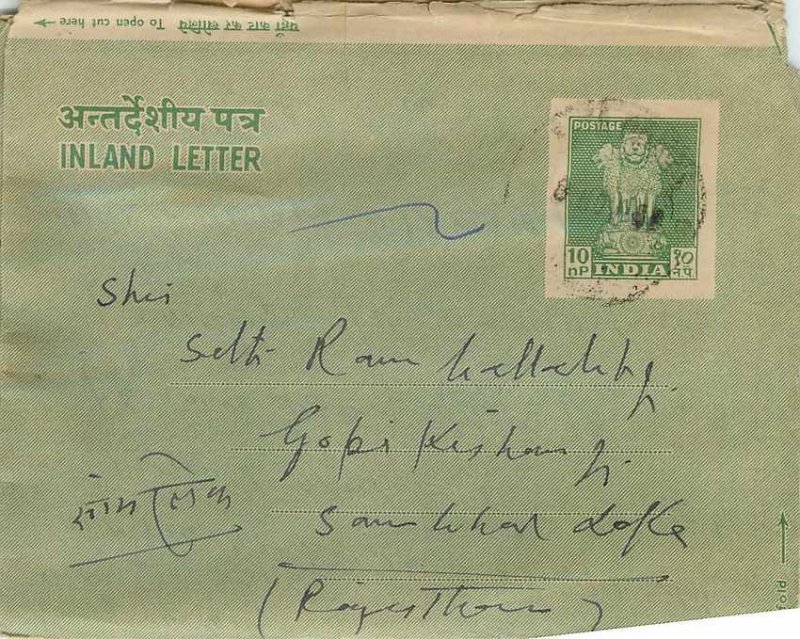 यहाँ काट कर खोलिये To open cut here →
अन्तर्देशीय पत्र
INLAND LETTER
POSTAGE
10 nP INDIA १० न.पै
Shri
Seth Ram
Gopi Kishanji
Sambhar Lake
(Rajasthan)
fold →